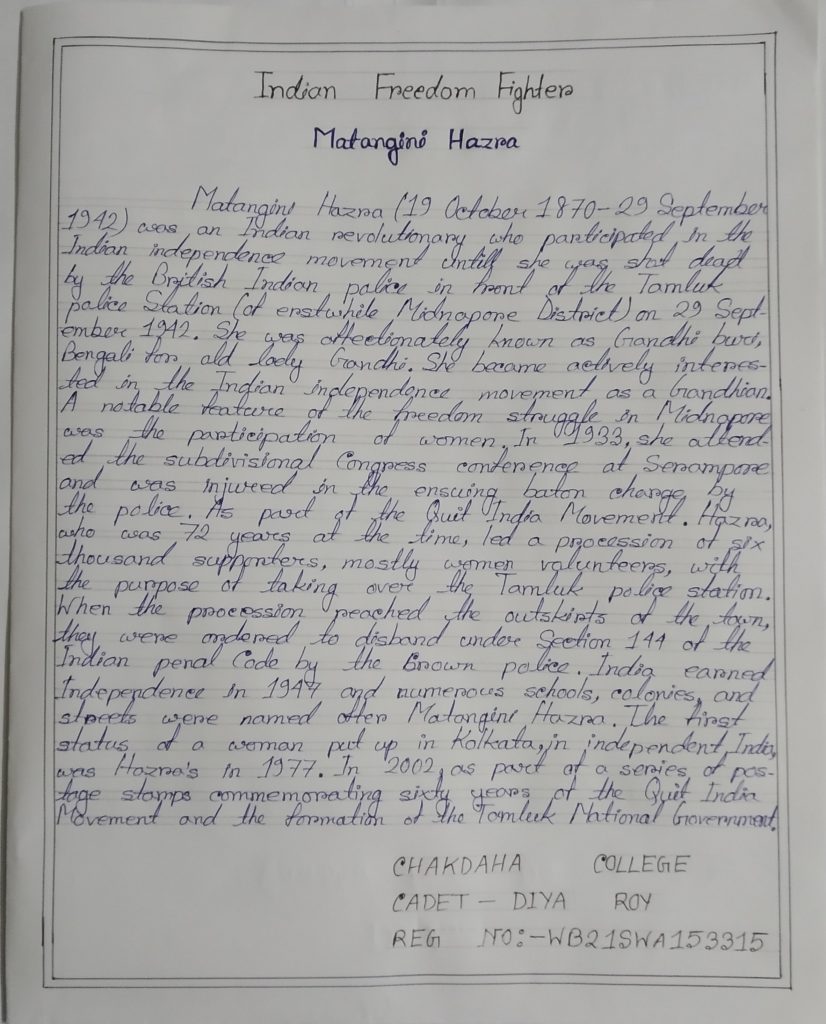 Indian Freedom Fighter
Matangini Hazra
Matangini Hazra (19 October 1870-29 September
1942) was an Indian revolutionary who participated in the
Indian independence movement untill she was shot dead
by the British Indian police in front of the Tamluk
police Station (of erstwhile Midnapore District) on 29 Sept-
ember 1942. She was affectionately known as Gandhi buri,
Bengali for old lady Gandhi. She became actively interes-
ted in the Indian independence movement as a Gandhian.
A notable feature of the freedom struggle in Midnapore
was the participation of women. In 1933, she attend-
ed the subdivisional Congress conference at Serampore
and was injured in the ensuing baton charge by
the police. As part of the Quit India Movement. Hazra,
who was 72 years at the time, led a procession of six
thousand supporters, mostly women volunteers, with
the purpose of taking over the Tamluk police station.
When the procession reached the outskirts of the town,
they were ordered to disband under Section 144 of the
Indian penal Code by the Crown police. India earned
Independence in 1947 and numerous schools, colonies, and
streets were named after Matangini Hazra. The first
status of a woman put up in Kolkata, in independent India,
was Hazra's in 1977. In 2002, as part of a series of pos-
tage stamps commemorating sixty years of the Quit India
Movement and the formation of the Tamluk National Government.
CHAKDAHA COLLEGE
CADET - DIYA ROY
REG NO:-WB21SWA153315